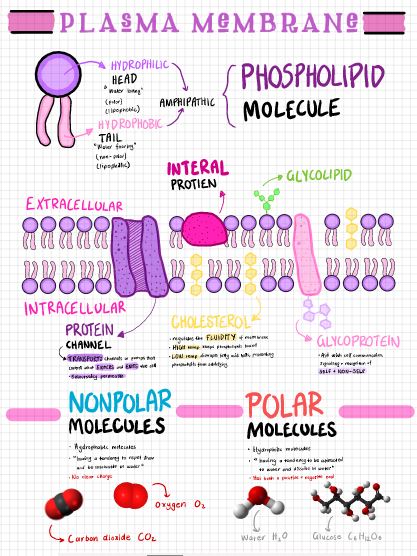 PLASMA MEMBRANE
HYDROPHILIC
HEAD
"Water loving"
(polar)
(lipophobic)
HYDROPHOBIC
TAIL
"Water fearing"
(non-polar)
(lipophilic)
AMPHIPATHIC
PHOSPHOLIPID
MOLECULE
INTERAL
PROTIEN
GLYCOLIPID
EXTRACELLULAR
INTRACELLULAR
PROTEIN
CHANNEL
• TRANSPORTS channels or pumps that
control what ENTERS and EXITS the cell
• Selectively permeable
CHOLESTEROL
• regulates the FLUIDITY of membrane
• HIGH temp keeps phospholipids bound
• LOW temp disrupts fatty acid tails, preventing
phospholipids from solidifying
GLYCOPROTEIN
• Aid with cell communication,
signaling + recognition of
SELF + NON-SELF
NONPOLAR
MOLECULES
• Hydrophobic molecules
• "having a tendency to repel from
and be insoluble in water"
• No clear charge
Oxygen O2
Carbon dioxide CO2
POLAR
MOLECULES
• Hydrophilic molecules
• "having a tendency to be attracted
to water and dissolve in water"
• Has both a positive + negative end
Water H2O
Glucose C6H12O6